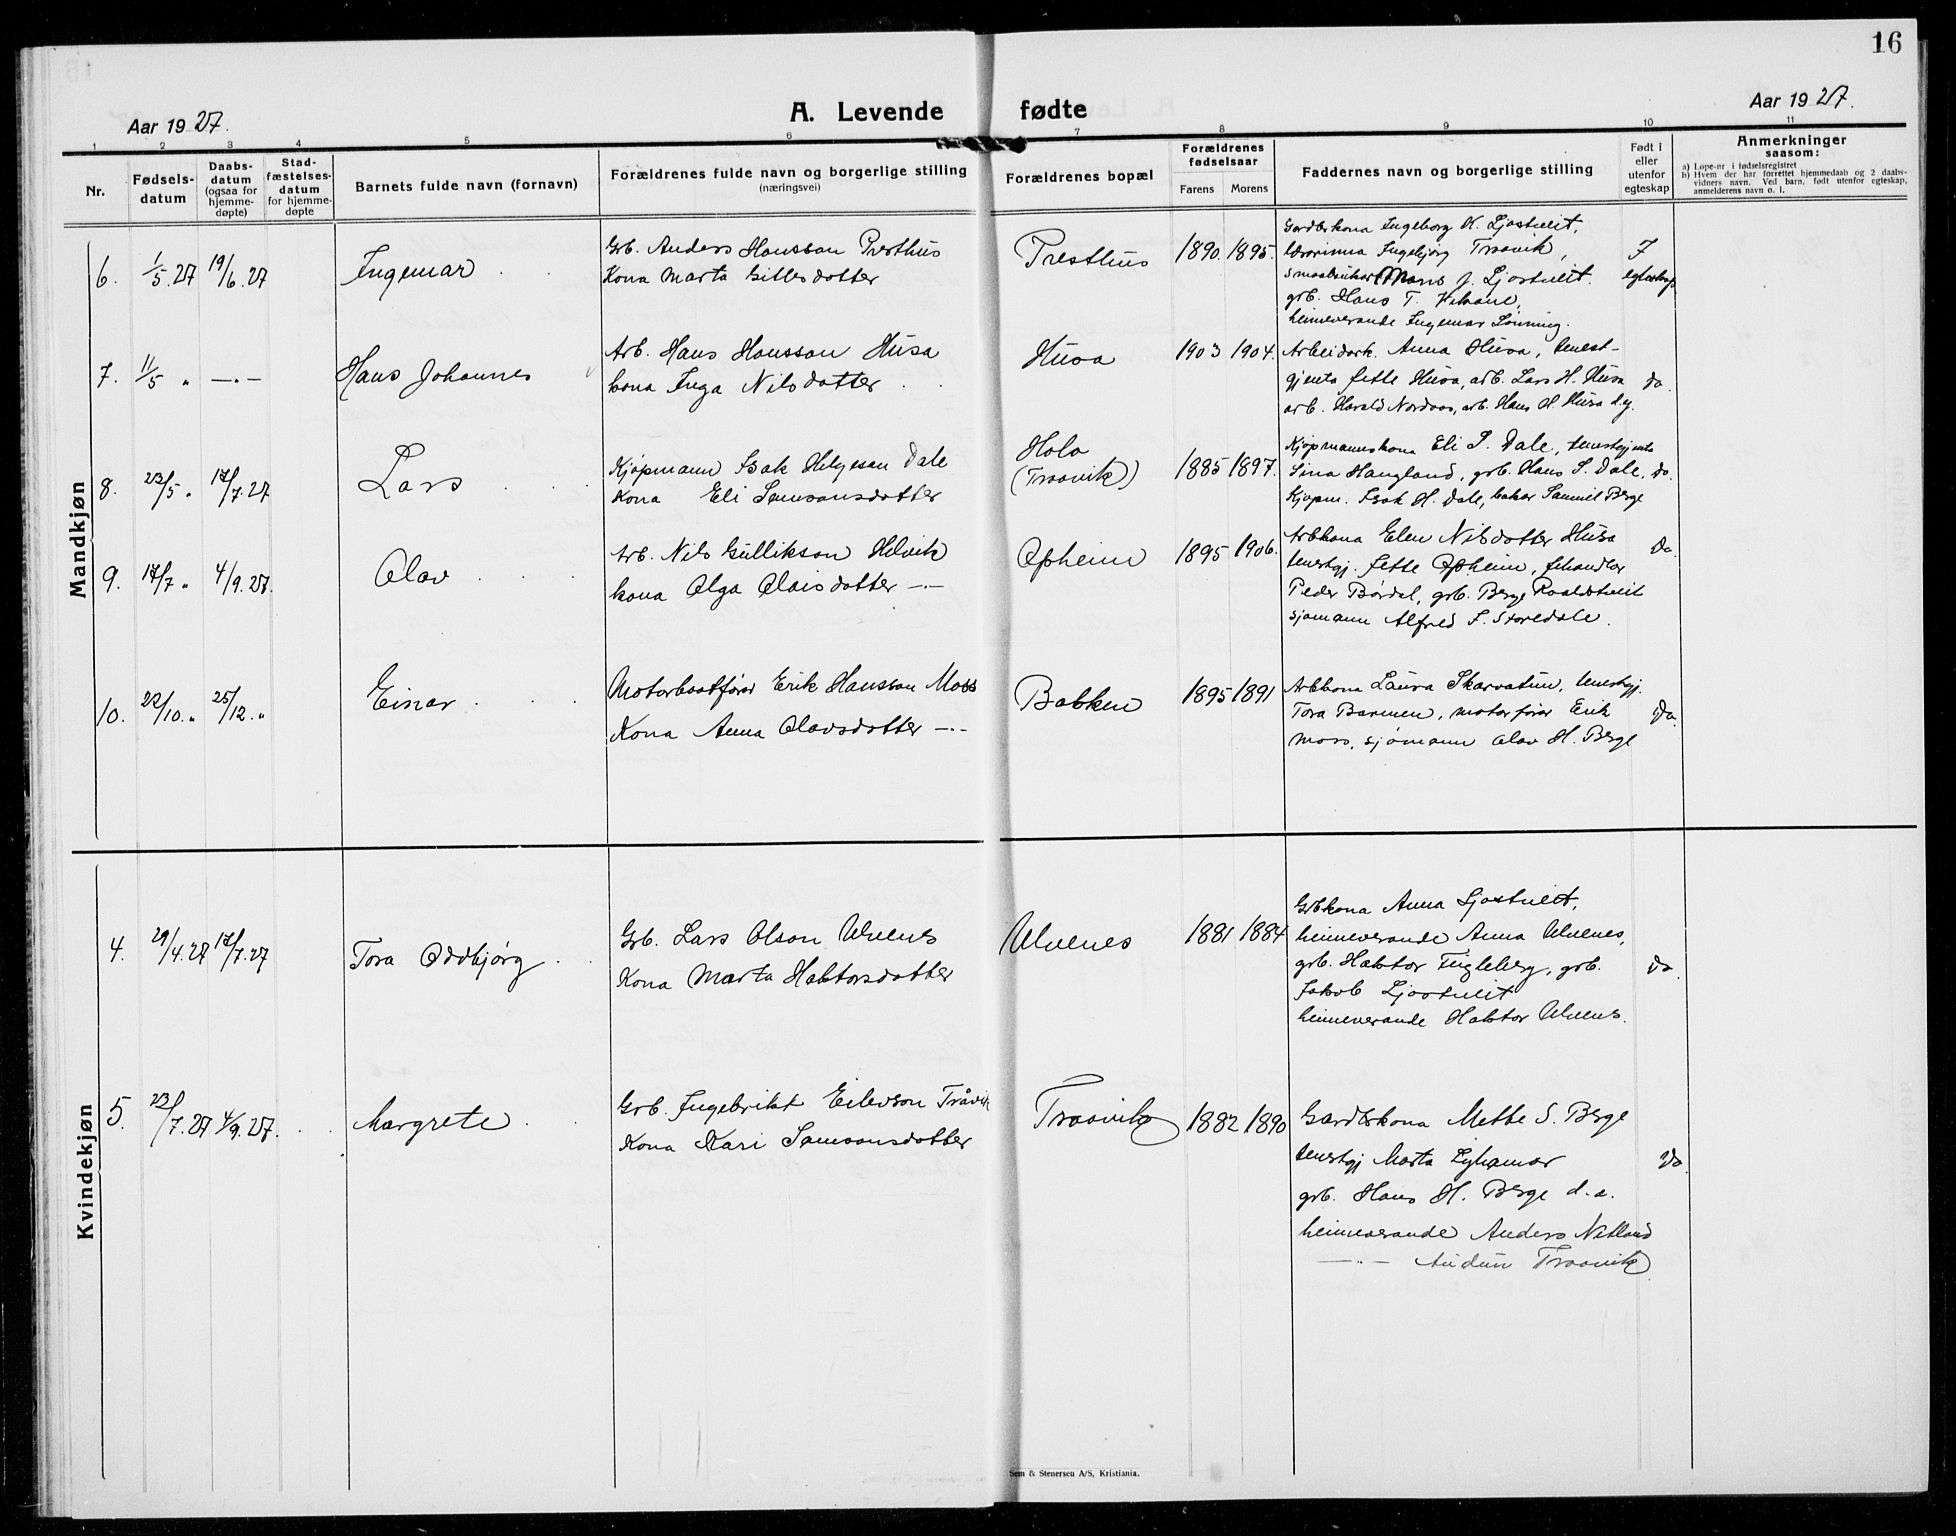 16
Aar 1927.
A. Levende fødte
Aar 1927.
1 2 3 4 5 6 7 8 9 10 11
Nr.
Fødsels-
datum
Daabs-
datum
(ogsaa for
hjemme-
døpte)
Stad-
fæstelses-
datum
for hjemme-
døpte
Barnets fulde navn (fornavn)
Forældrenes fulde navn og borgerlige stilling
(næringsvei)
Forældrenes bopæl
Forældrenes
fødselsaar
Farens Morens
Faddernes navn og borgerlige stilling
Født i
eller
utenfor
egteskap
Anmerkninger
saasom:
a) Løpe-nr. i fødselsregistret
b) Hvem der har forrettet hjemmedaab og 2 daabs-
vidners navn. Ved barn, født utenfor egteskap,
anmelderens navn o. l.
Mandkjøn
6. 1/5.27 19/6.27
Ingemar
Grb. Anders Hansson Presthus
Kona Marta Gittlsdotter
Presthus
1890. 1895.
Gardbrkona Ingeborg K. Ljostveit,
Lærarinna Ingebjørg Traavik,
Mons J. Ljostveit.
grb. Hans T.
heimeverande Ingemar Lønning.
I
egteskap
7. 11/5 „ —„—
Hans Johannes
Arb. Hans Hansson Husa
kona Inga Nilsdotter
Husa
1903 1904.
Arbeidark. Anna Husa, tenest-
gjenta Jette Husa, arb. Lars H. Husa
arb. Harald Nordaas, arb. Hans H. Husa d.y.
do.
8. 23/5 „ 17/7.27
Lars
Kjøpmann Isak Helgeson Dale
Kona Eli Samsonsdotter
Hola
(Traavik)
1885 1897.
Kjøpmannskona Eli S. Dale, tenestgjenta
Sina Haugland, grb. Hans S. Dale,
Kjøpm. Isak H. Dale, bakar Samuel Berge
do.
9. 17/7 „ 4/9.27.
Olav
Arb. Nils Gullikson Helvik
kona Olga Olaisdotter —„—
Opheim
1895 1906.
Arbkona Elen Nilsdotter Husa
tenestgj. Jette Opheim, fehandlar
Peder Børdal, grb. Berge Roaldstveit
sjømann Alfred F. Storedale.
do.
10. 22/10. „ 25/12. „
Einar
Motorbaatførar Erik Hansson Moss
Kona Anna Olavsdotter —„—
Bakken
1895 1891
Arbkona Laura Skarvatun, tenestgj.
Tora Barmen, motorførar Erik
Moss, sjømann Olav H. Berge
do.
Kvindekjøn
4. 29/4.27 17/7.27
Tora Oddbjørg
Grb. Lars Olson Ulvenes
Kona Marta Haktorsdotter
Ulvenes
1881 1884
Grbkona Anna Ljostveit,
heimeverande Anna Ulvenes,
grb. Haktor Tigleberg, grb.
Jakob Ljostveit
heimeverande Haktor Ulvenes.
do.
5. 23/7.27 4/9.27.
Margrete
Grb. Ingebrikt Eilevson Tråvik
Kona Kari Samsonsdotter
Traavik
1882 1890
Gardbrkona Mette S. Berge
tenestgj Marta Lyhamar
grb. Hans H. Berge d.e.
heimeverande Anders Netland
—„— Audun Traavik
do.
Sem & Stenersen A/S, Kristiania.